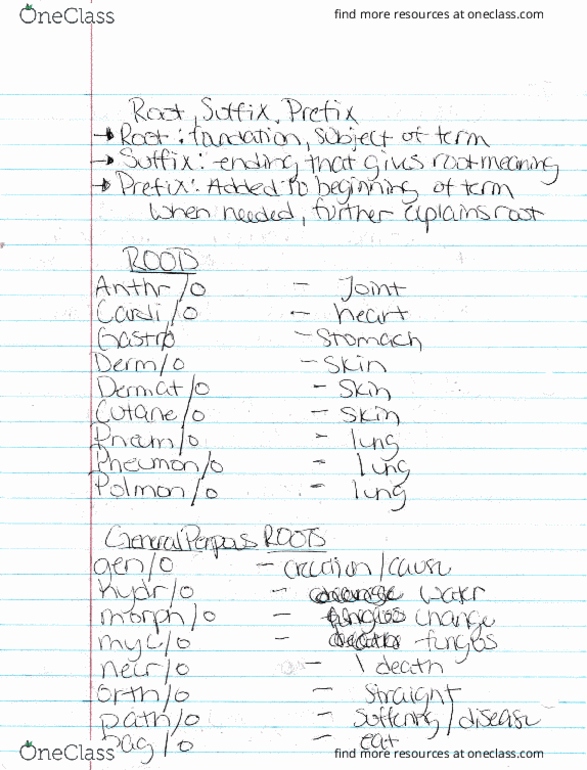 OneClass find more resources at oneclass.com
Root, Suffix, Prefix
→ Root: foundation, subject of term
→ Suffix: ending that gives root meaning
→ Prefix: Added to beginning of term
when needed, further explains root
ROOTS
Anthr/o - Joint
Cardi/o - heart
Gastr/o - Stomach
Derm/o - Skin
Dermat/o - Skin
Cutane/o - Skin
Pneum/o - lung
Pneumon/o - lung
Polmon/o - lung
General Perpos ROOTS
gen/o - creation/cause
hydr/o - water
morph/o - change
myc/o - fungos
necr/o - death
orth/o - straight
path/o - suffering/disease
pag/o - eat
OneClass find more resources at oneclass.com